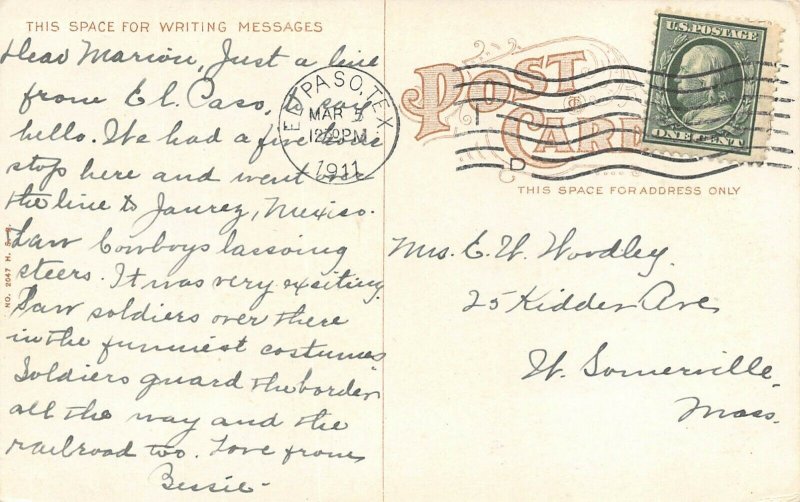 THIS SPACE FOR WRITING MESSAGES
Dear Marion, Just a line
from El. Paso, to say
hello. We had a five
stop here and went over
the line to Jaurez, Mexico.
Saw Cowboys lassoing
steers. It was very exsiting.
Saw soldiers over there
in the funniest costumes
Soldiers guard the border
all the way and the
railroad too. Love from
Bessie-
NO. 2047 H. S. B.
EL PASO, TEX.
MAR 5
12 PM
1911
U.S. POSTAGE
ONE CENT
POST
CARD
THIS SPACE FOR ADDRESS ONLY
Mrs. E. W. Woodley.
25 Kidder Ave
W. Somerville.
Mass.